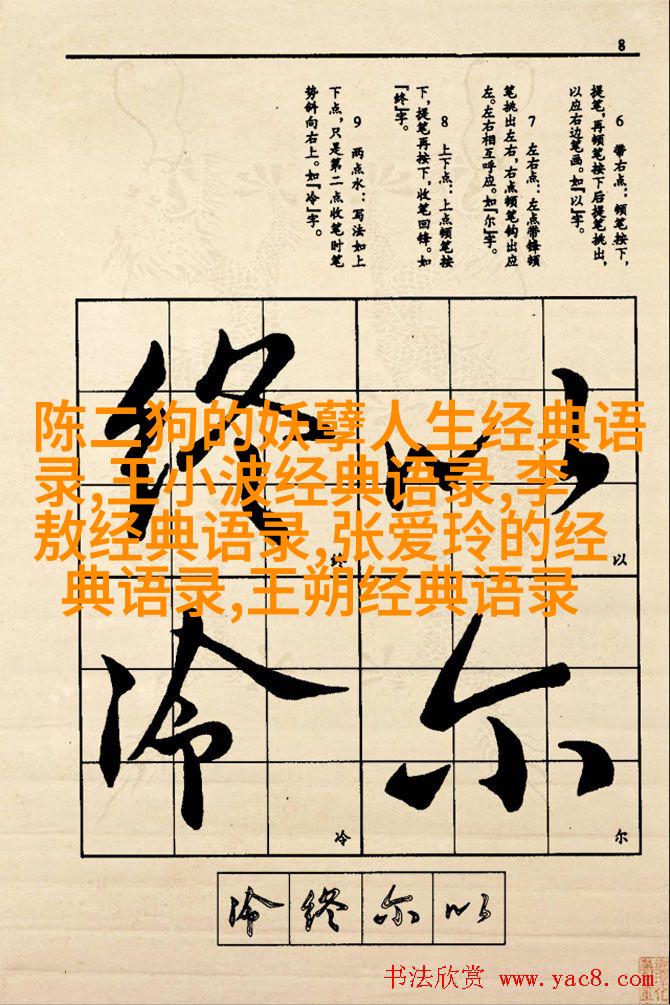 8
6 带右点：顿笔按下，
提笔，再顿笔按下后提笔挑出，
以应右边笔画。如『以』字。
7 左右点：左点带锋顿
笔挑出左右，右点顿笔钩出应
左。左右相互呼应。如『尔』字。
8 上下点：上点顿笔按
下，提笔再按下，收笔回锋。如
『终』字。
9 两点水：写法如上
下点，只是第二点收笔时笔
势斜向右上。如『冷』字。
陈二狗的妖孽人生经典语
录,王小波经典语录,李
敖经典语录,张爱玲的经
典语录,王朔经典语录
以
尔
终
冷
以
尔
终
冷
冷 终 尔 以
书法欣赏 www.yac8.com